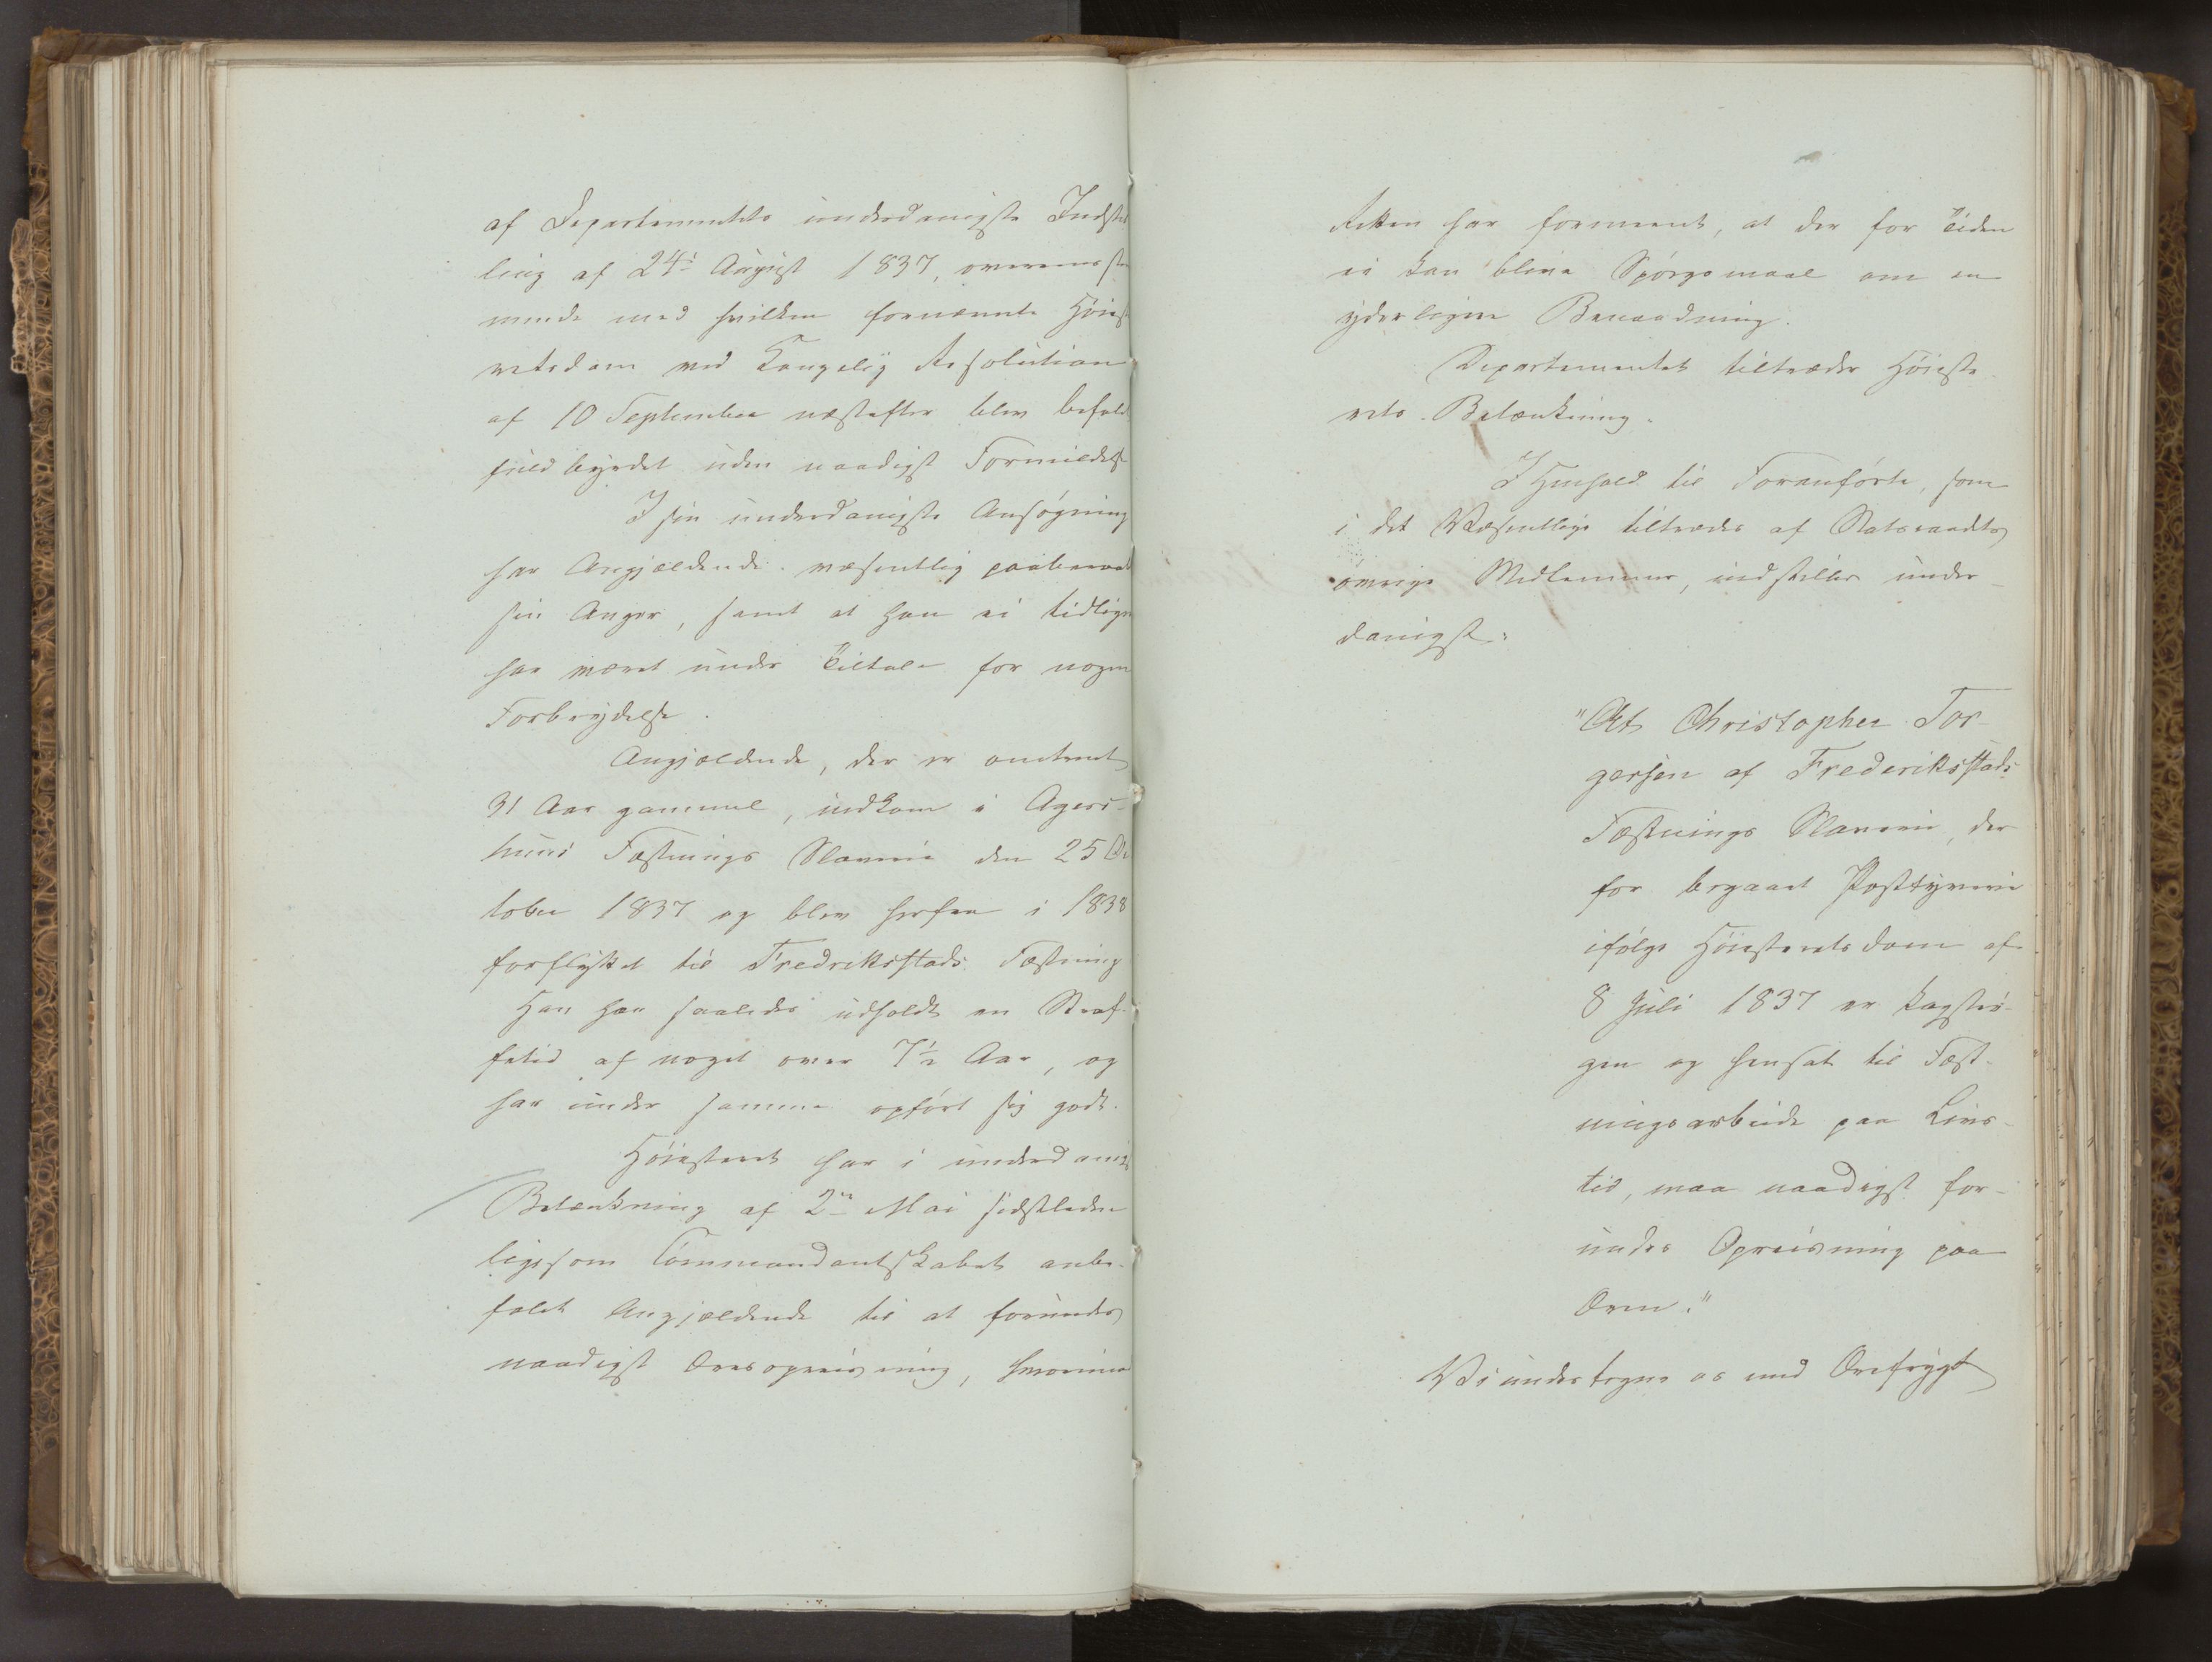 af Departementets underdanigste Indstil
ling af 24de August 1837, overensstem
mende med hvilken fornævnte Høieste
retsdom ved Kongelig Resolution
af 10 September næstefter blev befalet
fuldbyrdet uden naadigst Formildelse
I sin underdanigste Ansøgning
har Angjældende væsentlig paaberaabt
sin Anger, samt at han ei tidligere
har været under Tiltale for nogen
Forbrydelse.
Angjældende, der er omtrent
31 Aar gammel, indkom i Agers-
huus Fæstnings Slaverie den 25 Oc
tober 1837 og blev herfra i 1838
forflyttet til Fredriksstads Fæstning
Han har saaledes udholdt en Straf-
fetid af noget over 7½ Aar, og
har under samme opført sig godt.
Høiesteret har i underdanig
Betænkning af 2den Mai sidstleden
ligesom Commandantskabet anbe-
falet Angjældende til at forundes
naadigst Æresopreisning, hvorimod
Retten har formeent, at der for Tiden
ei kan blive Spørgsmaal om en
yderligere Benaadning.
Departementet tiltræder Høieste-
rets Betænkning.
I Henhold til Foranførte, som
i det Væsentlige tiltrædes af Statsraadets
øvrige Medlemmer, indstilles under-
danigst:
"At Christopher Tor-
gersen af Frederiksstads
Fæstnings Slaverie, der
for begaaet Posttyverie
ifølge Høiesteretsdom af
8 Juli 1837 er kagstrø-
gen og hensat til Fæst-
ningsarbeide paa Livs-
tid, maa naadigst for-
undes Opreisning paa
Æren."
Vi undertegne os med Ærefrygt